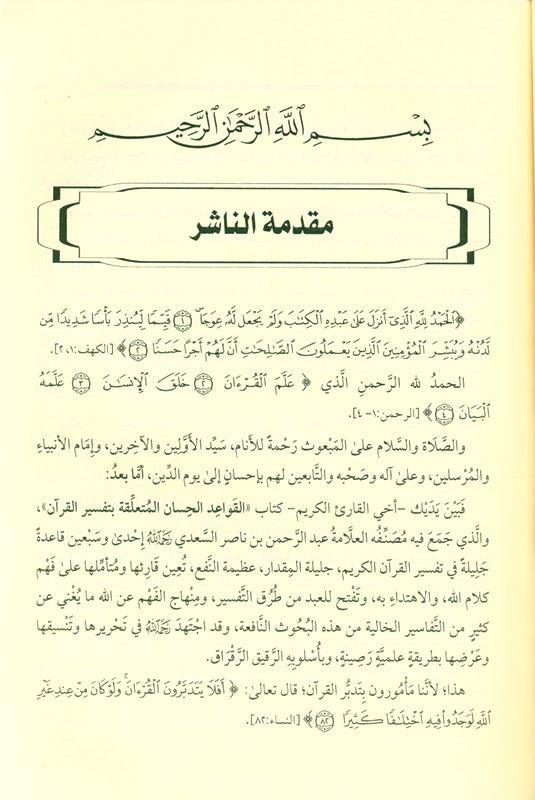 بِسْمِ ٱللَّهِ ٱلرَّحْمَٰنِ ٱلرَّحِيمِ
مقدمة الناشر
﴿ٱلْحَمْدُ لِلَّهِ ٱلَّذِىٓ أَنزَلَ عَلَىٰ عَبْدِهِ ٱلْكِتَٰبَ وَلَمْ يَجْعَل لَّهُۥ عِوَجَاۜ ۝١ قَيِّمًا لِّيُنذِرَ بَأْسًا شَدِيدًا مِّن
لَّدُنْهُ وَيُبَشِّرَ ٱلْمُؤْمِنِينَ ٱلَّذِينَ يَعْمَلُونَ ٱلصَّٰلِحَٰتِ أَنَّ لَهُمْ أَجْرًا حَسَنًا ۝٢﴾ [الكهف:١، ٢].
الحمدُ لله الرَّحمنِ الَّذي ﴿عَلَّمَ ٱلْقُرْءَانَ ۝٢ خَلَقَ ٱلْإِنسَٰنَ ۝٣ عَلَّمَهُ
ٱلْبَيَانَ ۝٤﴾ [الرحمن:١- ٤].
والصَّلاة والسَّلام علىٰ المَبْعوث رَحْمةً للأنام، سَيِّد الأوَّلين والآخِرين، وإمَام الأنبياءِ
والمُرْسلين، وعلىٰ آله وصَحْبه والتَّابعين لهم بإحسانٍ إلىٰ يوم الدِّين، أمَّا بعدُ:
فَبَيْنَ يَدَيْك -أخي القارئ الكريم- كتاب «القَواعِد الحِسان المُتعلِّقة بتفسير القرآن»،
والَّذي جَمَعَ فيه مُصَنِّفُه العلاَّمةُ عبد الرَّحمن بن ناصر السَّعدي رَحِمَهُ ٱللَّهُ إحْدىٰ وسَبْعين قاعدةً
جَلِيلةً في تفسير القرآن الكريم، جليلة المِقدار، عظيمة النَّفع، تُعِين قَارِئها ومُتأمِّلها علىٰ فَهْم
كلام الله، والاهتداء به، وتَفْتح للعبد من طُرُق التَّفسير، ومِنْهاج الفَهْم عن الله ما يُغْني عن
كثيرٍ من التَّفاسير الخالية من هذه البُحُوث النَّافعة، وقد اجتَهَدَ رَحِمَهُ ٱللَّهُ في تَحْريرها وتَنْسيقها
وعَرْضها بطريقةٍ علميَّةٍ رَصِينةٍ، وبأُسْلوبِهِ الرَّقيق الرَّقْراق.
هذا؛ لأنَّنا مَأمُورون بتدبُّر القرآن؛ قال تعالىٰ: ﴿أَفَلَا يَتَدَبَّرُونَ ٱلْقُرْءَانَ ۚ وَلَوْ كَانَ مِنْ عِندِ غَيْرِ
ٱللَّهِ لَوَجَدُوا۟ فِيهِ ٱخْتِلَٰفًا كَثِيرًا ۝٨٢﴾ [النساء:٨٢].